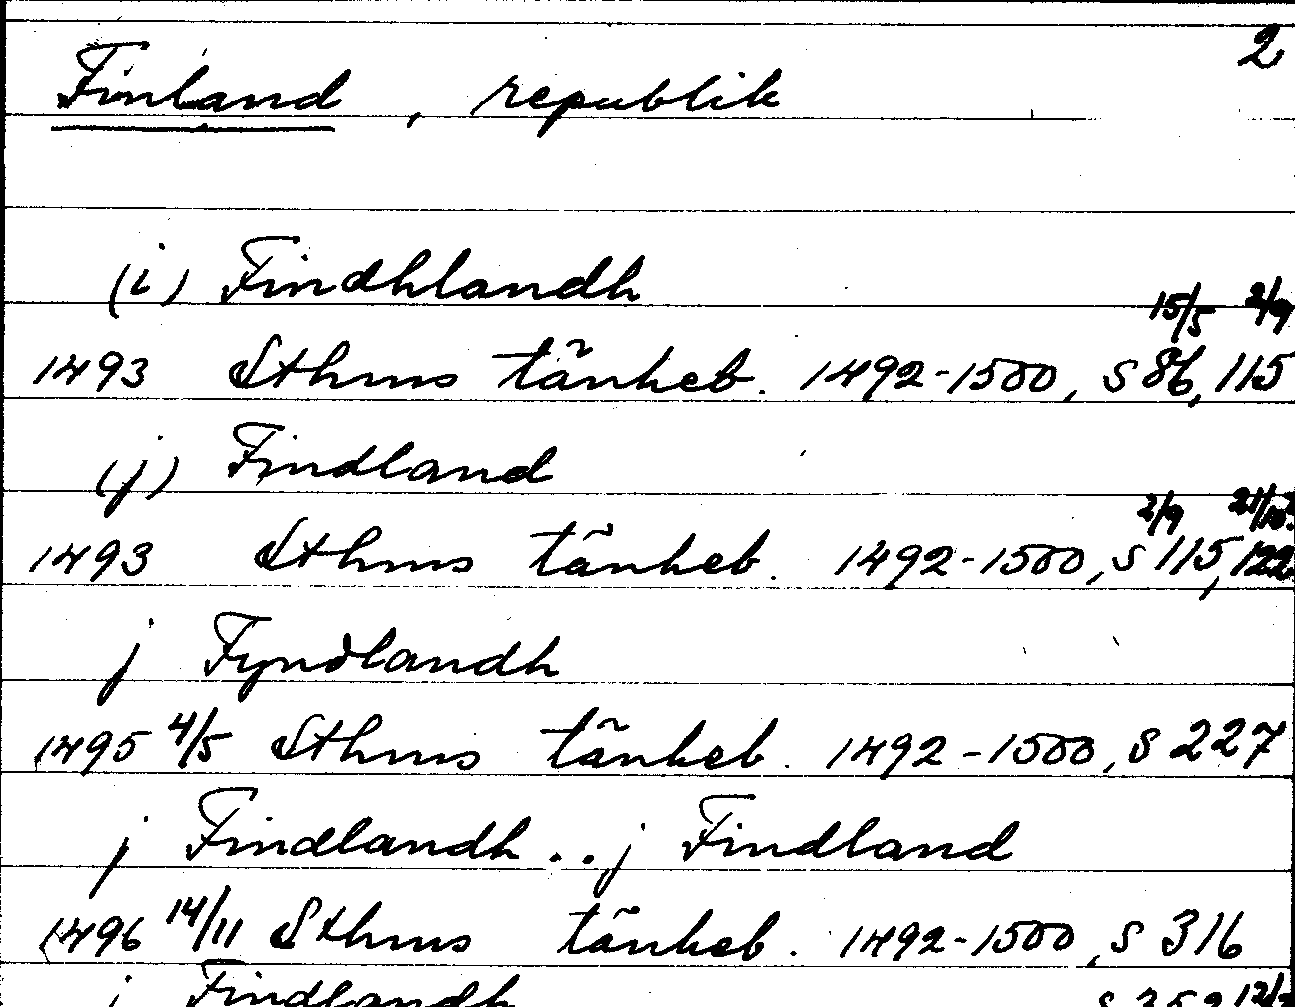 2
Finland, republik
(i) Findhlandh
15/5 2/9
1493 Sthms tänkeb. 1492-1500, s 86, 115
(j) Findland
2/9 21/10
1493 Sthms tänkeb. 1492-1500, s 115, 122
j Fyndlandh
1495 4/5 Sthms tänkeb. 1492-1500, s 227
j Findlandh .. j Findland
1496 14/11 Sthms tänkeb. 1492-1500, s 316
j Findlandh